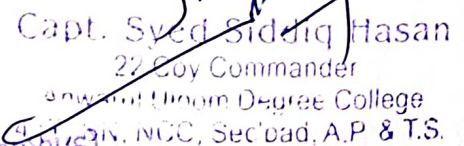 Capt. Syed Siddiq Hasan
22 Coy Commander
Degree College
BN. NCC, Sec'bad, A.P & T.S.